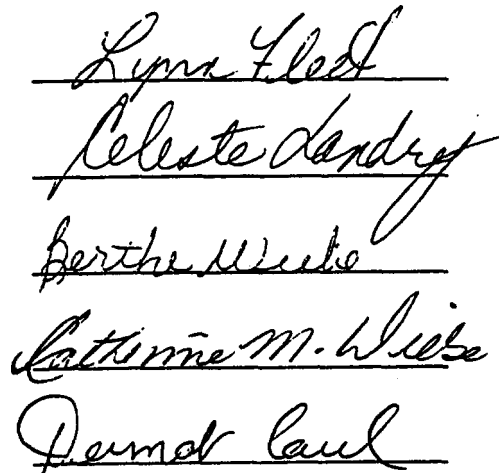 Lynn Fleet
Celeste Landry
Berthe Wiebe
Catherine M. Wiebe
Dermot Caul